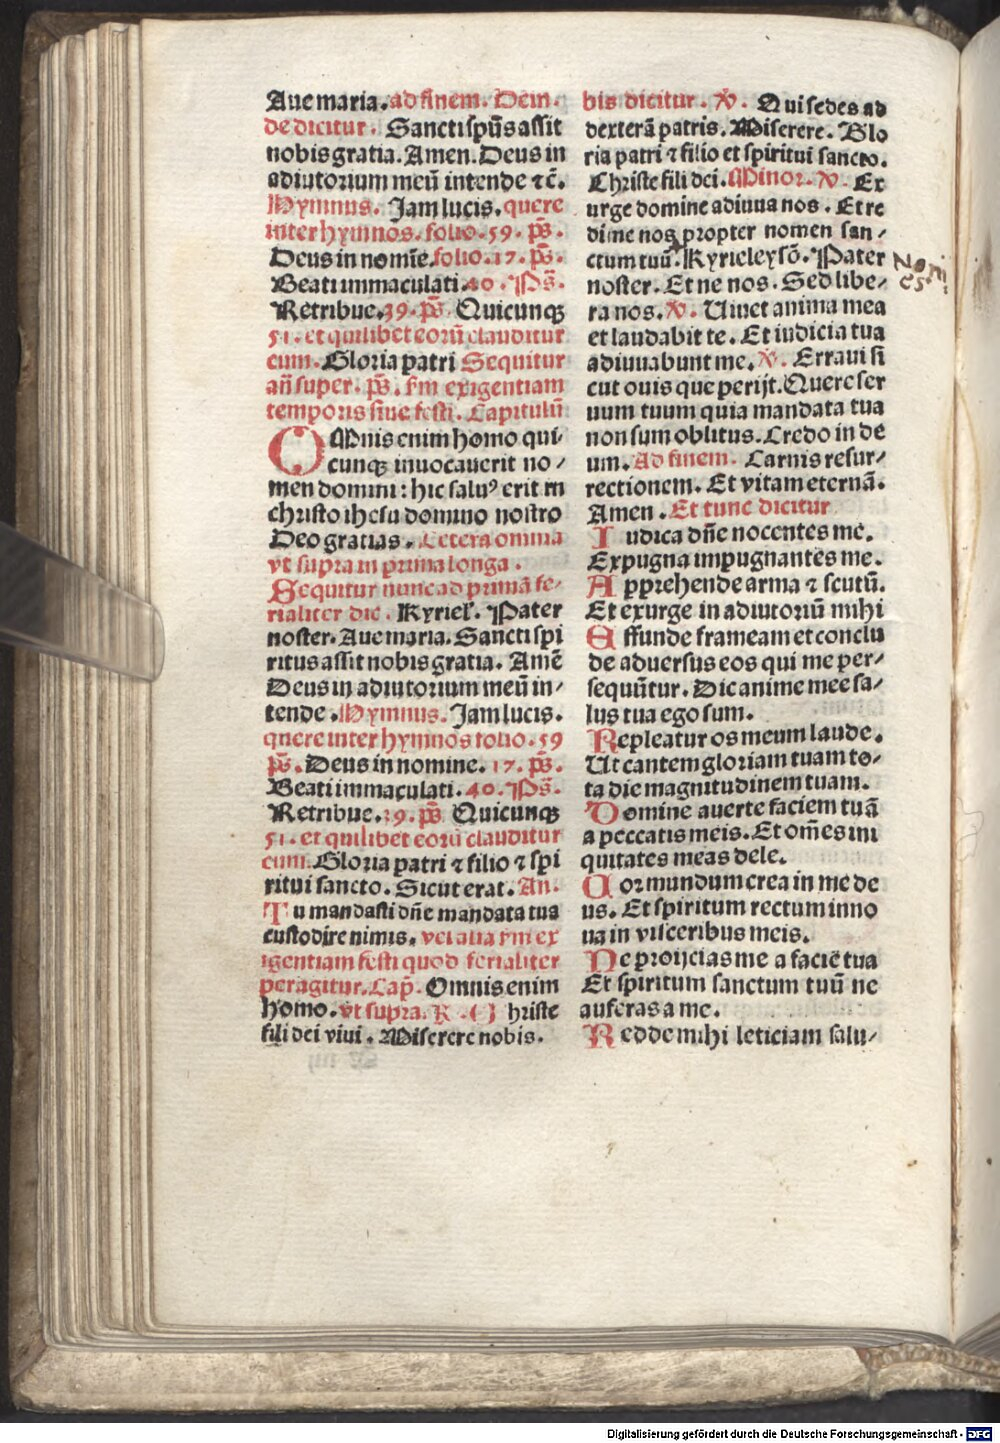 Aue maria. ad finem. Dein-
de dicitur. Sancti sp̄us assit
nobis gratia. Amen. Deus in
adiutorium meū intende ⁊ c̄.
Hymnus. Jam lucis. quere
inter hymnos. folio. 59. ps̄.
Deus in nomīe. folio. 17. ps̄.
Beati immaculati. 40. Ps̄.
Retribue. 39. ps̄ Quicunqꝫ
51. et quilibet eorū clauditur
cum. Gloria patri Sequitur
an̄ super. ps̄. s̄m exigentiam
temporis siue festi. Capitulū
OMnis enim homo qui-
cunqꝫ inuocauerit no/
men domini: hic saluꝰ erit in
christo ihesu domino nostro
Deo gratias. Cetera omnia
vt supra in prima longa.
Sequitur nunc ad primā fe/
rialiter dic. Kyriel'. Pater
noster. Aue maria. Sancti spi
ritus assit nobis gratia. Amē
Deus in adiutorium meū in/
tende. Hymnus. Jam lucis.
quere inter hymnos folio. 59
ps̄. Deus in nomine. 17. ps̄.
Beati immaculati. 40. Ps̄.
Retribue. 39. ps̄ Quicunqꝫ
51. et quilibet eorū clauditur
cum. Gloria patri ⁊ filio ⁊ spi
ritui sancto. Sicut erat. An.
Tu mandasti dn̄e mandata tua
custodire nimis. vel alia s̄m ex
igentiam festi quod ferialiter
peragitur. Cap̄. Omnis enim
homo. vt supra. R. Christe
fili dei viui. Miserere nobis.
bis dicitur. ℣. Qui sedes ad
dexterā patris. Miserere. Glo
ria patri ⁊ filio et spiritui sancto.
Christe fili dei. Minor. ℣. Ex
urge domine adiuua nos. Et re
dime nos propter nomen san/
ctum tuū. Kyrieleysō. Pater
noster. Et ne nos. Sed libe-
ra nos. ℣. Uiuet anima mea
et laudabit te. Et iudicia tua
adiuuabunt me. ℣. Erraui si
cut ouis que perijt. Quere ser
uum tuum quia mandata tua
non sum oblitus. Credo in de
um. Ad finem. Carnis resur/
rectionem. Et vitam eternā.
Amen. Et tunc dicitur
Iudica dn̄e nocentes me.
Expugna impugnantes me.
Apprehende arma ⁊ scutū.
Et exurge in adiutoriū mihi
Effunde frameam et conclu
de aduersus eos qui me per/
sequūtur. Dic anime mee sa/
lus tua ego sum.
Repleatur os meum laude.
Ut cantem gloriam tuam to-
ta die magnitudinem tuam.
Domine auerte faciem tuā
a peccatis meis. Et om̄es ini
quitates meas dele.
Cor mundum crea in me de
us. Et spiritum rectum inno
ua in visceribus meis.
Ne proijcias me a faciē tua
Et spiritum sanctum tuū ne
auferas a me.
Redde mihi leticiam salu/
Digitalisierung gefördert durch die Deutsche Forschungsgemeinschaft - DFG